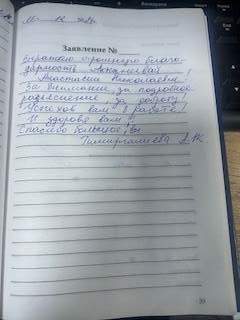 Заявление №
Выражаю огромную благо-
дарность
Анастасии Николаевне!
За внимание, за подробное
разъяснение, за работу!
Успехов вам в работе!
И здоровья вам!
Спасибо большое,
39